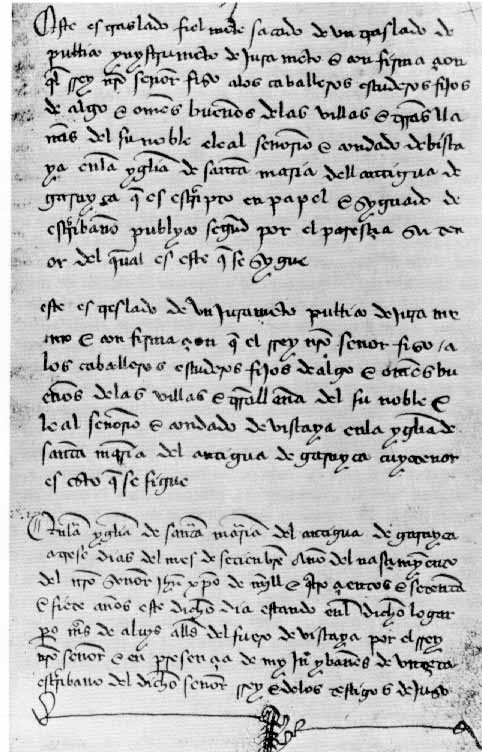 Este es traslado fiel mẽte sacado de vn traslado de
publico ynystrumẽto de jura mẽto & con firma çon
q̃l rrey nr̃o señor fizo alos caballeros escuderos fijos
de algo & omẽs buenos delas villas & trr̃as lla
nas del su noble eleal señorio & condado de bisca
ya enla ygl̃ia de santa maria dell antigua de
garnyca q̃ es escripto en papel & sygnado de
escribano publyco segũd por el paresçia su ten
or del qual es este q̃ se sygue
este es treslado de vn juramẽto publico de jura mẽ
nto & con firma çon q̃ el rrey nr̃o señor fizo a
los caballeros escuderos fijos dealgo & omẽs bu
enos delas villas & trr̃a llana del su noble &
leal señorio & condado de viscaya enla ygl̃ia de
santa maria del antigua de garnyca cuyo tenor
es esto q̃ se sigue
Enla ygl̃ia de santa maria del antigua de garnyca
a trese dias del mes de setienbre año del nasçimyento
del nr̃o señor ihũ xp̃o de myll & q̃tro çientos & setenta
& siete años este dicho dia estando enl dicho logar
del fuero de viscaya por el rrey
nr̃o señor & en presençia de my ybanes de
escribano del dicho señor rrey & delos testigos de juso